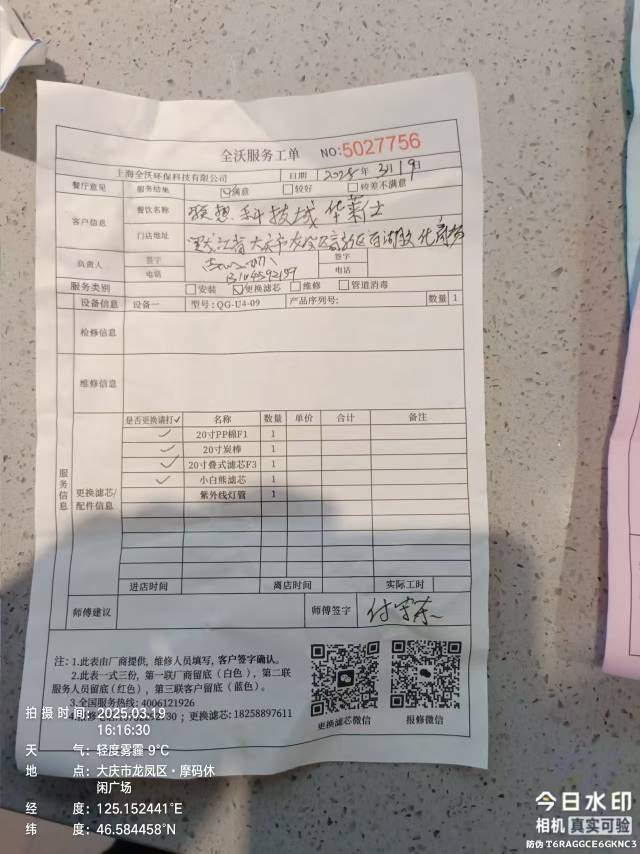 全沃服务工单 NO:5027756
上海全沃环保科技有限公司 日期 2025年3月19日
餐厅意见 服务结集 ☑满意 □较好 □较差不满意
客户信息 餐饮名称 联想科技城华莱士
门店地址 黑龙江省大庆市龙凤区高新区百湖文化广场
负责人 签字 签字
电话 电话
服务类别 □安装 ☑更换滤芯 □维修 □管道消毒
设备信息 设备一 型号:QG-U4-09 产品序列号: 数量 1
检修信息
维修信息
服务信息
更换滤芯/配件信息
是否更换请打✓ 名称 数量 单价 合计 备注
✓ 20寸PP棉F1 1
✓ 20寸炭棒 1
✓ 20寸叠式滤芯F3 1
✓ 小白熊滤芯 1
紫外线灯管 1
进店时间 离店时间 实际工时
师傅建议 师傅签字
注:1.此表由厂商提供,维修人员填写,客户签字确认。
2.此表一式三份,第一联厂商留底(白色),第二联
服务人员留底(红色),第三联客户留底(蓝色)。
3.全国服务热线:4006121926
更换滤芯:18258897611
更换滤芯微信 报修微信
拍摄时间:2025.03.19
16:16:30
天气:轻度雾霾 9℃
地点:大庆市龙凤区·摩码休
闲广场
经度:125.152441°E
纬度:46.584458°N
今日水印
相机 真实可验
防伪 T6RAGGCE6GKNC3